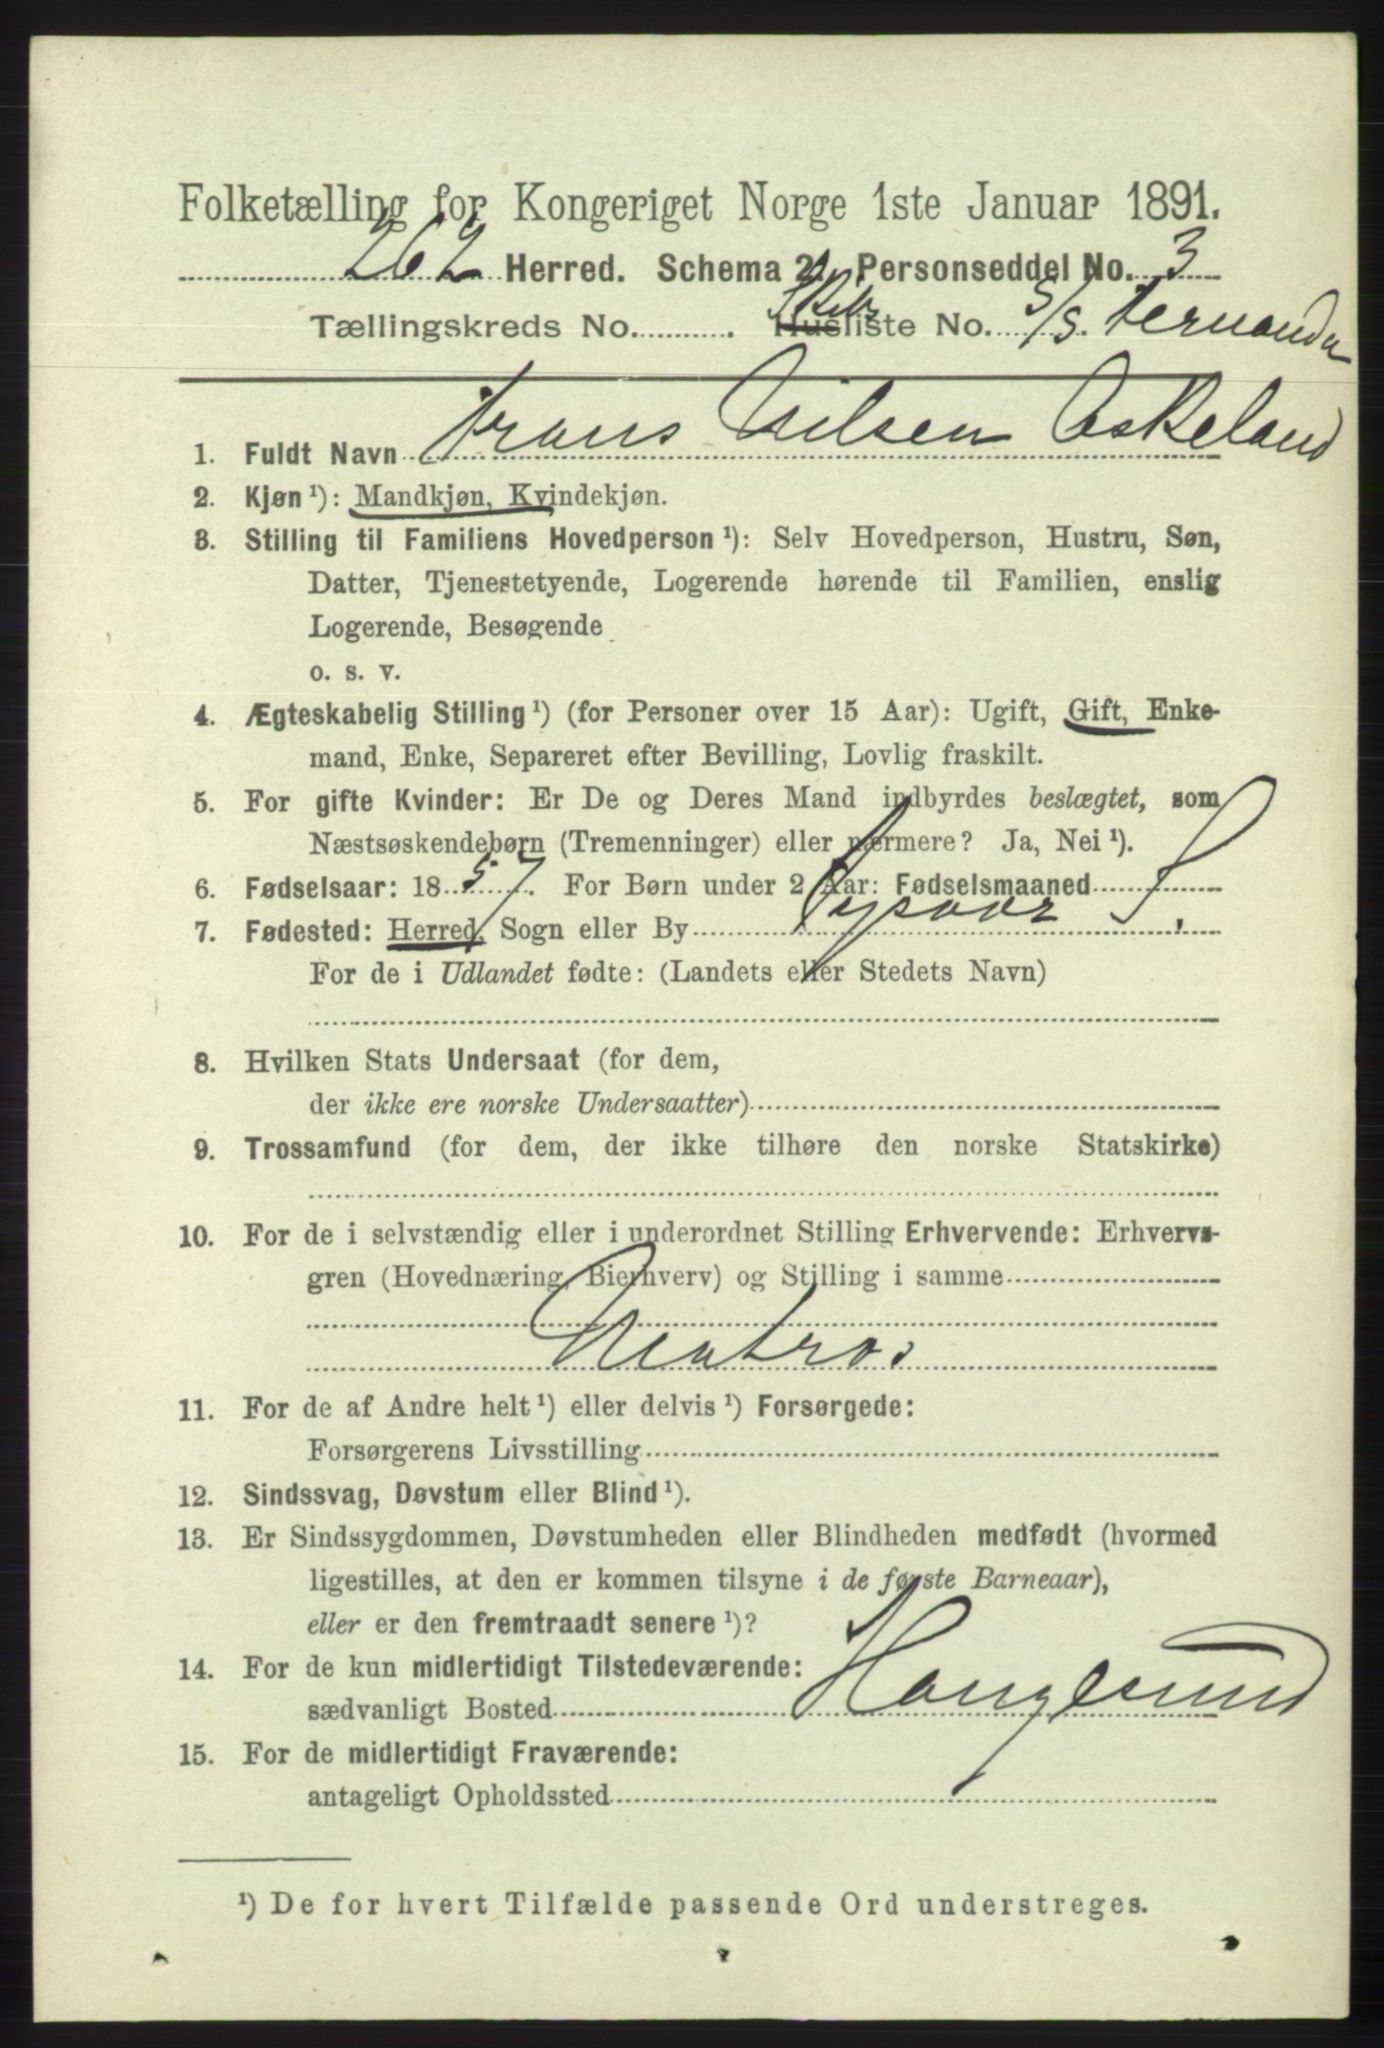 Folketælling for Kongeriget Norge 1ste Januar 1891.
262 Herred. Schema 2. Personseddel No. 3
Tællingskreds No. Skibsliste No. S/S. Fernanda
1. Fuldt Navn Hans Nilsen Askeland
2. Kjøn ¹): Mandkjøn, Kvindekjøn.
3. Stilling til Familiens Hovedperson ¹): Selv Hovedperson, Hustru, Søn,
Datter, Tjenestetyende, Logerende hørende til Familien, enslig
Logerende, Besøgende
o. s. v.
4. Ægteskabelig Stilling ¹) (for Personer over 15 Aar): Ugift, Gift, Enke-
mand, Enke, Separeret efter Bevilling, Lovlig fraskilt.
5. For gifte Kvinder: Er De og Deres Mand indbyrdes beslægtet, som
Næstsøskendebørn (Tremenninger) eller nærmere? Ja, Nei ¹).
6. Fødselsaar: 1857. For Børn under 2 Aar: Fødselsmaaned
7. Fødested: Herred, Sogn eller By Tysvær S.
For de i Udlandet fødte: (Landets eller Stedets Navn)
8. Hvilken Stats Undersaat (for dem,
der ikke ere norske Undersaatter)
9. Trossamfund (for dem, der ikke tilhøre den norske Statskirke)
10. For de i selvstændig eller i underordnet Stilling Erhvervende: Erhvervs-
gren (Hovednæring, Bierhverv) og Stilling i samme
Matros
11. For de af Andre helt ¹) eller delvis ¹) Forsørgede:
Forsørgerens Livsstilling
12. Sindssvag, Døvstum eller Blind ¹).
13. Er Sindssygdommen, Døvstumheden eller Blindheden medfødt (hvormed
ligestilles, at den er kommen tilsyne i de første Barneaar),
eller er den fremtraadt senere ¹)?
14. For de kun midlertidigt Tilstedeværende:
sædvanligt Bosted Haugesund
15. For de midlertidigt Fraværende:
antageligt Opholdssted
¹) De for hvert Tilfælde passende Ord understreges.